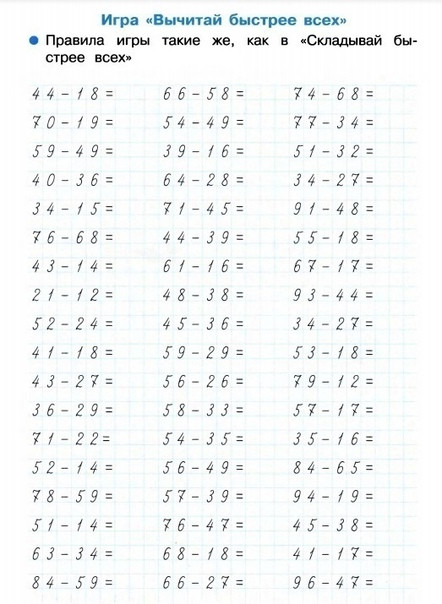 Игра «Вычитай быстрее всех»
● Правила игры такие же, как в «Складывай бы-
стрее всех»
44-18= 66-58= 74-68=
70-19= 54-49= 77-34=
59-49= 39-16= 51-32=
40-36= 64-28= 34-27=
34-15= 71-45= 91-48=
76-68= 44-39= 55-18=
43-14= 61-16= 67-17=
21-12= 48-38= 93-44=
52-24= 45-36= 34-27=
41-18= 59-29= 53-18=
43-27= 56-26= 79-12=
36-29= 58-33= 57-17=
71-22= 54-35= 35-16=
52-14= 56-49= 84-65=
78-59= 57-39= 94-19=
51-14= 76-47= 45-38=
63-34= 68-18= 41-17=
84-59= 66-27= 96-47=